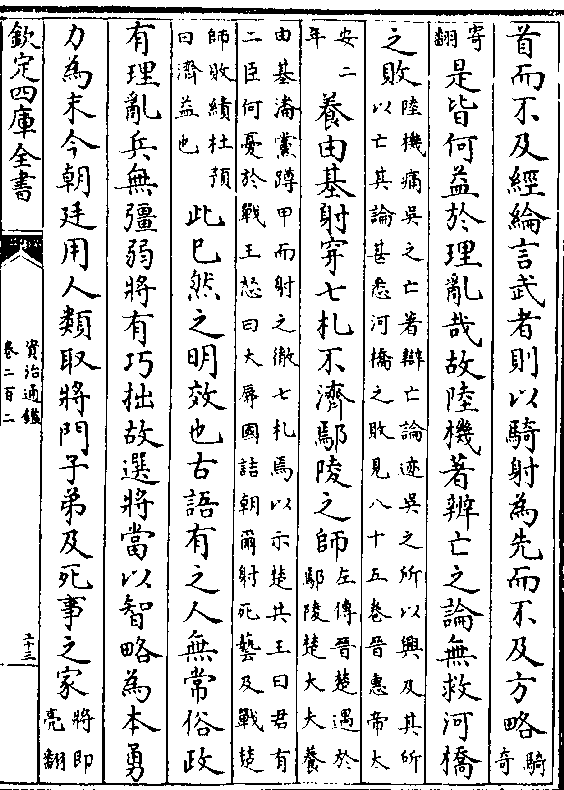 首而不及經綸言武者則以騎射為先而不及方略騎奇
寄翻是皆何益於理亂哉故陸機著辨亡之論無救河橋
之敗陸機痛吳之亡著辯亡論述吳之所以興及其所以亡其論甚悉河橋之敗見八十五卷晉惠帝太
安二年養由基射穿七札不濟鄢陵之師左傳晉楚遇於鄢陵楚大夫養
由基潘黨蹲甲而射之徹七札焉以示楚共王曰君有二臣何憂於戰王怒曰大辱國詰朝爾射死藝及戰楚
師敗績杜預曰濟益也此已然之明效也古語有之人無常俗政
有理亂兵無彊弱將有巧拙故選將當以智略為本勇
力為末今朝廷用人類取將門子弟及死事之家將即亮翻
欽定四庫全書
資治通鑑
卷二百二
二十三